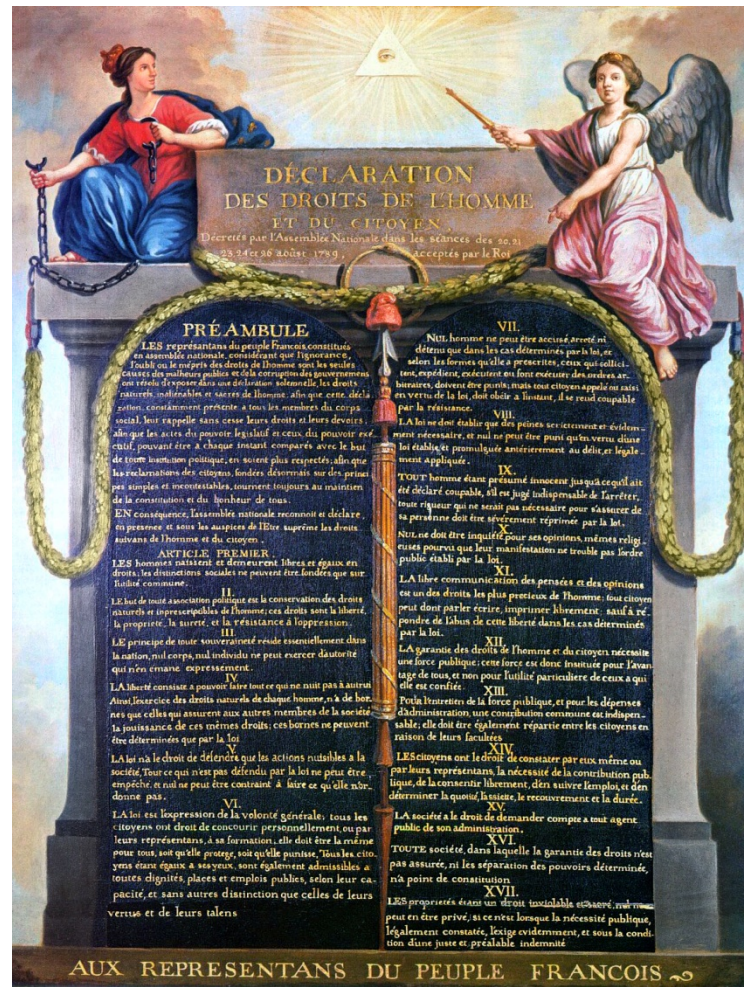 DÉCLARATION
DES DROITS DE L'HOMME
ET DU CITOYEN,
Décretés par l'Assemblée Nationale dans les séances des 20, 21
23, 24 et 26 août 1789, acceptés par le Roi
PRÉAMBULE
LES représentans du peuple François, constitués
en assemblée nationale, considérant que l'ignorance,
l'oubli ou le mépris des droits de l'homme sont les seules
causes des malheurs publics et de la corruption des gouvernemens
ont résolu d'exposer dans une déclaration solemnelle, les droits
naturels, inaliénables et sacrés de l'homme; afin que cette décla
ration, constamment présente a tous les membres du corps
social, leur rappelle sans cesse leurs droits et leurs devoirs;
afin que les actes du pouvoir législatif et ceux du pouvoir exé
cutif, pouvant être à chaque instant comparés avec le but
de toute institution politique, en soient plus respectés; afin que
les reclamations des citoyens, fondées désormais sur des princi
pes simples et incontestables, tournent toujours au maintien
de la constitution et du bonheur de tous.
EN conséquence, l'assemblée nationale reconnoit et déclare,
en presence et sous les auspices de l'Etre suprême les droits
suivans de l'homme et du citoyen.
ARTICLE PREMIER.
LES hommes naissent et demeurent libres et égaux en
droits; les distinctions sociales ne peuvent être fondées que sur
l'utilité commune.
II.
LE but de toute association politique est la conservation des droits
naturels et inprescripibles de l'homme; ces droits sont la liberté,
la propriete, la sureté, et la résistance à l'oppression.
III.
LE principe de toute souveraineté réside essentiellement dans
la nation, nul corps, nul individu ne peut exercer d'autorité
qui n'en émane expressement.
IV.
LA liberté consiste a pouvoir faire tout ce qui ne nuit pas à autrui
Ainsi, l'exercice des droits naturels de chaque homme, n'a de bor-
nes que celles qui assurent aux autres membres de la société
la jouissance de ces mêmes droits; ces bornes ne peuvent
être déterminées que par la loi
V.
LA loi n'a le droit de défendre que les actions nuisibles a la
société. Tout ce qui n'est pas défendu par la loi ne peut être
empêché, et nul ne peut être contraint à faire ce qu'elle n'or-
donne pas.
VI.
LA loi est l'expression de la volonté générale; tous les
citoyens ont droit de concourir personnellement, ou par
leurs représentans, à sa formation; elle doit être la même
pour tous, soit qu'elle protege, soit qu'elle punisse, Tous les cito
yens étans égaux a ses yeux, sont également admissibles a
toutes dignités, places et emplois publics, selon leur ca-
pacité, et sans autres distinction que celles de leurs
vertus et de leurs talens
VII.
NUL homme ne peut être accusé, arreté ni
détenu que dans les cas déterminés par la loi, et
selon les formes qu'elle a prescrites, ceux qui sollici-
tent, expédient, exécutent ou font exécuter des ordres ar-
bitraires, doivent être punis; mais tout citoyen appelé ou saisi
en vertu de la loi, doit obéir a l'instant, il se reud coupable
par la résistance.
VIII.
LA loi ne doit établir que des peines strictement et évidem-
ment nécessaire, et nul ne peut être puni qu'en vertu d'une
loi établie et promulguée antérierement au délit, et légale-
ment appliquée.
IX.
TOUT homme étant présumé innocent jusqu'à ce qu'il ait
été déclaré coupable, s'il est jugé indispensable de l'arrêter,
toute rigueur qui ne serait pas nécessaire pour s'assurer de
sa personne doit être sévèrement réprimée par la loi.
X.
NUL ne doit être inquiété pour ses opinions, mêmes religi-
euses pourvu que leur manifestation ne trouble pas l'ordre
public établi par la loi.
XI.
LA libre communication des pensées et des opinions
est un des droits les plus precieux de l'homme; tout citoyen
peut dont parler écrire, imprimer librement; sauf à ré-
pondre de l'abus de cette liberté dans les cas déterminés
par la loi.
XII.
LA garantie des droits de l'homme et du citoyen nécessite
une force publique; cette force est donc instituée pour l'avan
tage de tous, et non pour l'utilité particuliere de ceux a qui
elle est confiée.
XIII.
Pour l'entretien de la force publique, et pour les dépenses
d'administration, une contribution commune est indispen-
sable; elle doit être également répartie entre les citoyens en
raison de leurs facultées
XIV.
LES citoyens ont le droit de constater par eux même ou
par leurs représentans, la nécessité de la contribution pub-
lique, de la consentir librement, d'en suivre l'emploi, et d'en
déterminer la quotité, l'assiette, le recouvrement et la durée.
XV.
LA société a le droit de demander compte a tout agent
public de son administration.
XVI.
TOUTE société, dans laquelle la garantie des droits n'est
pas assurée, ni les séparation des pouvoirs déterminée,
n'a point de constitution
XVII.
LES proprietés étant un droit inviolable et sacré, nul ne
peut en être privé, si ce n'est lorsque la nécessité publique,
légalement constatée, l'exige evidemment, et sous la condi-
tion d'une juste et préalable indemnité
AUX REPRESENTANS DU PEUPLE FRANCOIS